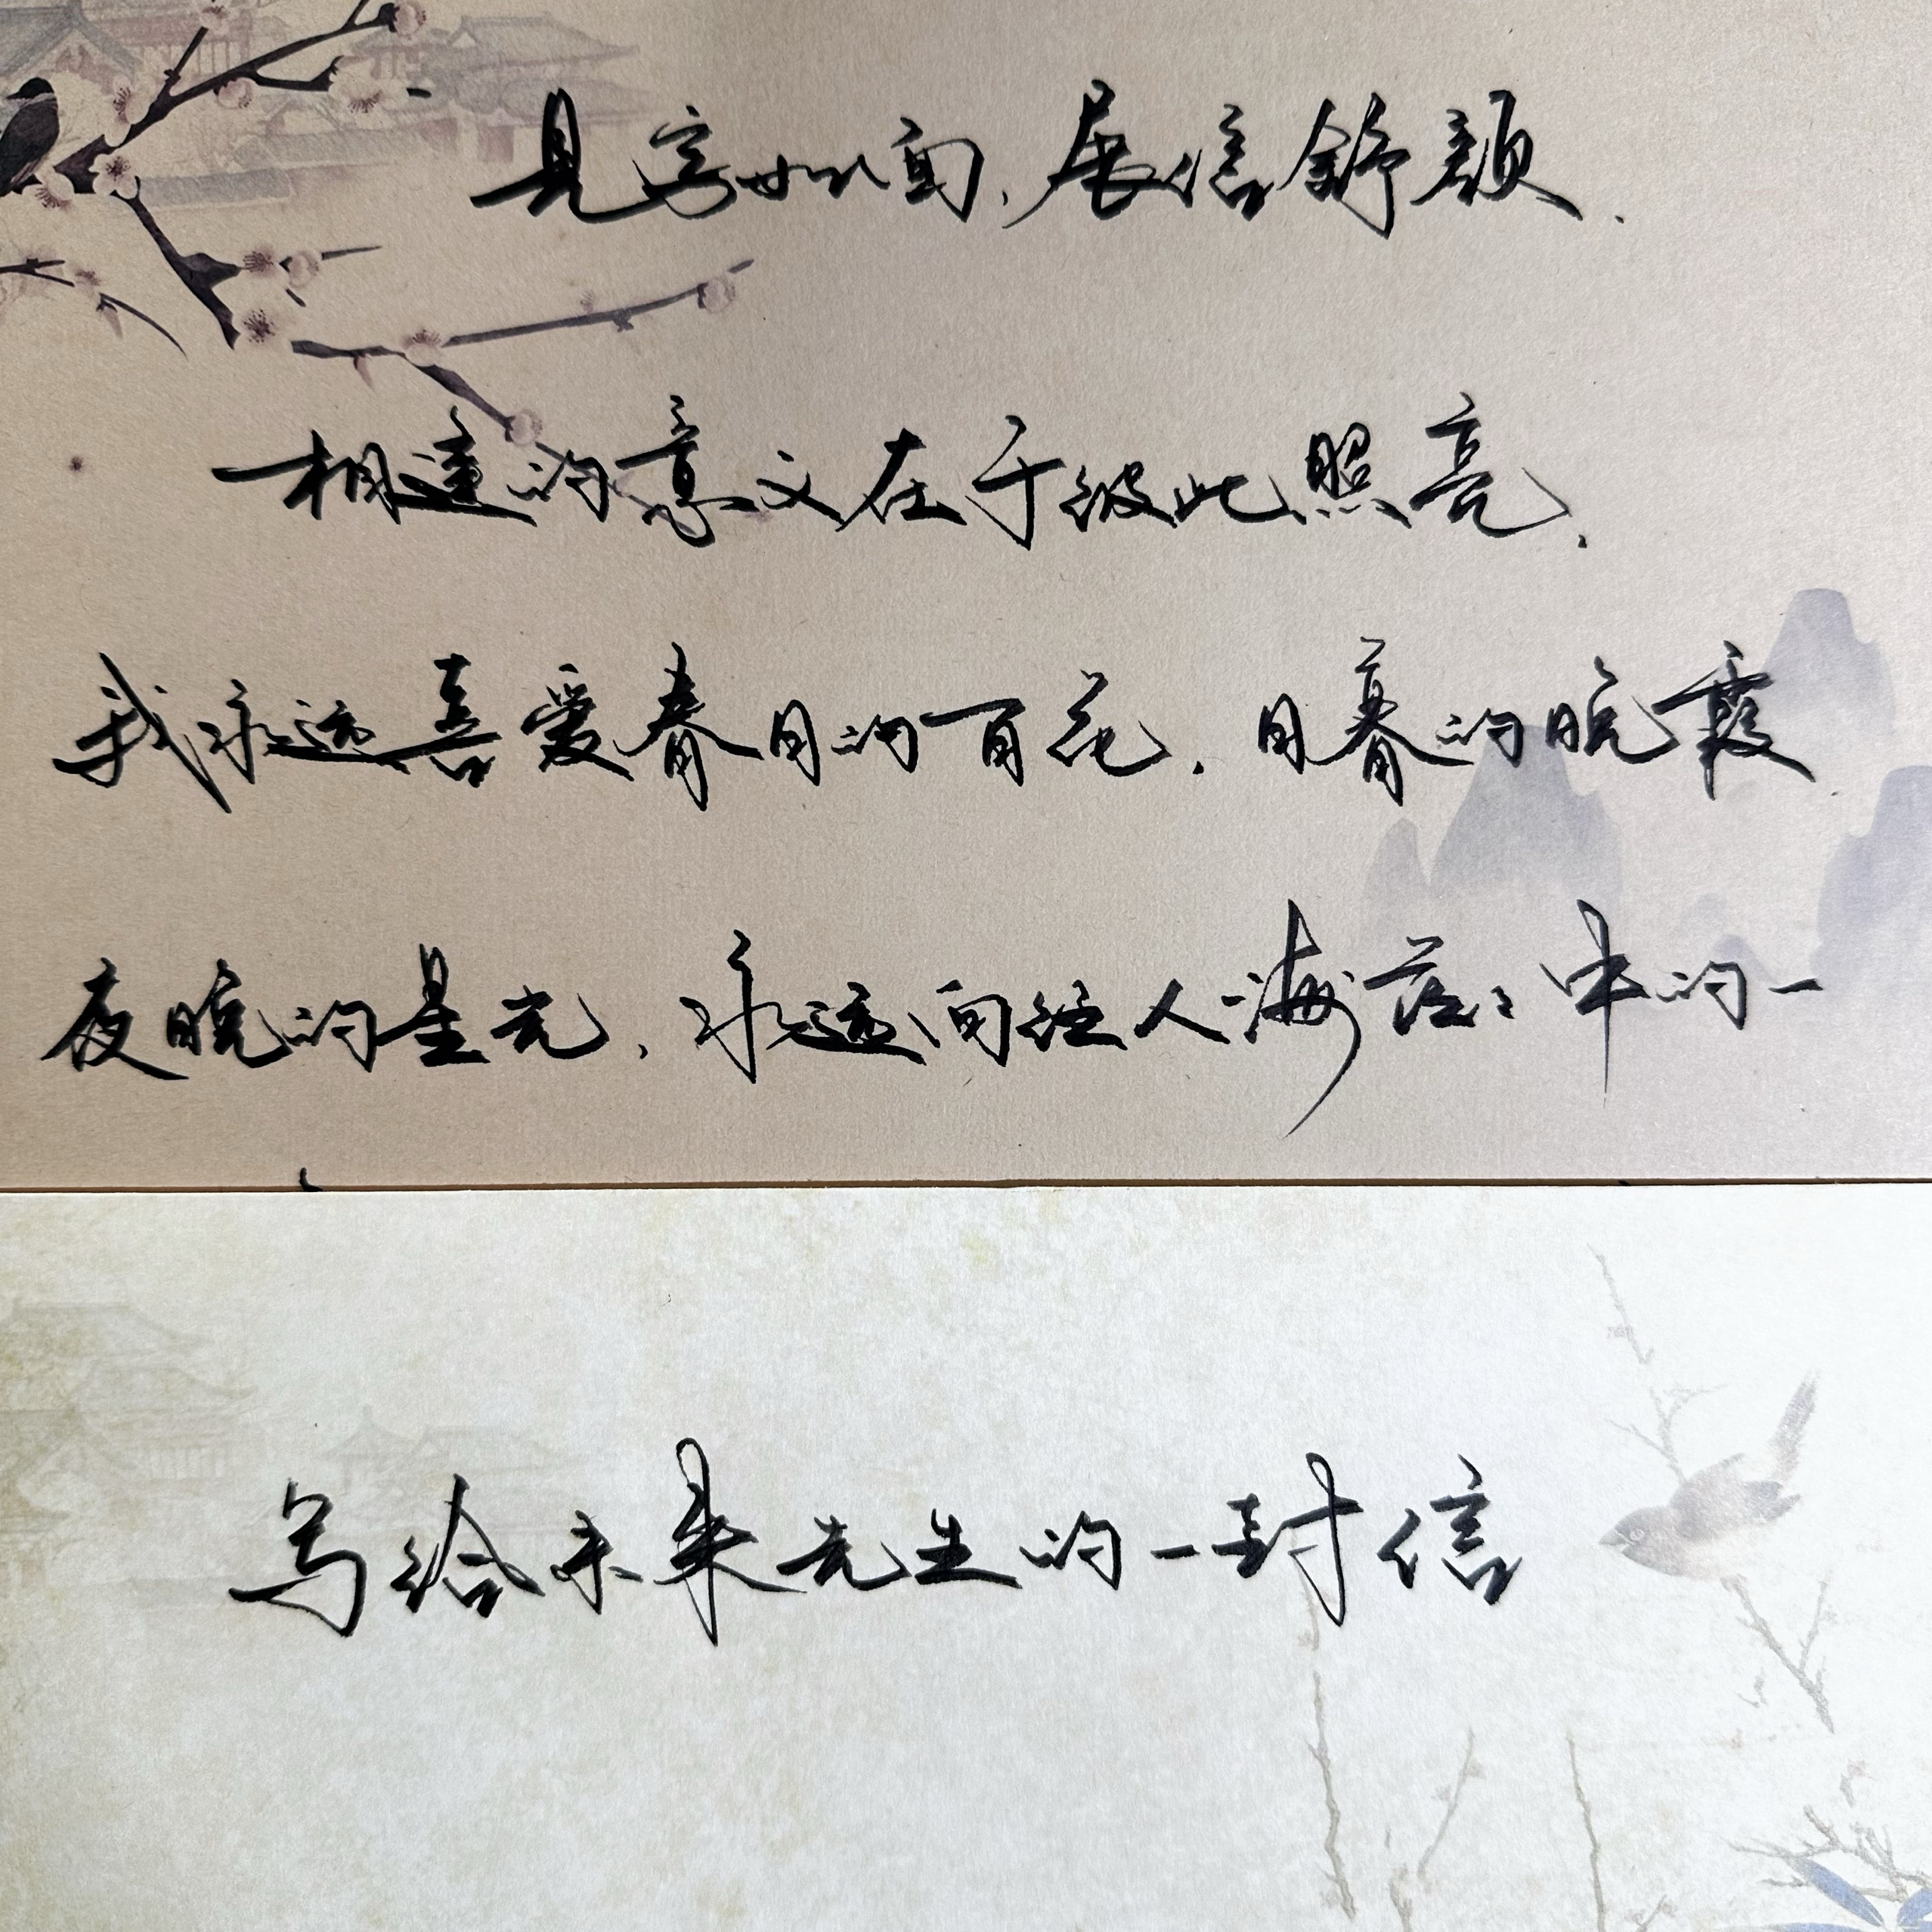 见字如面,展信舒颜.
相逢的意义在于彼此照亮.
我永远喜爱春日的百花.日暮的晚霞.
夜晚的星光,永远向往人海茫茫中的一
写给未来先生的一封信